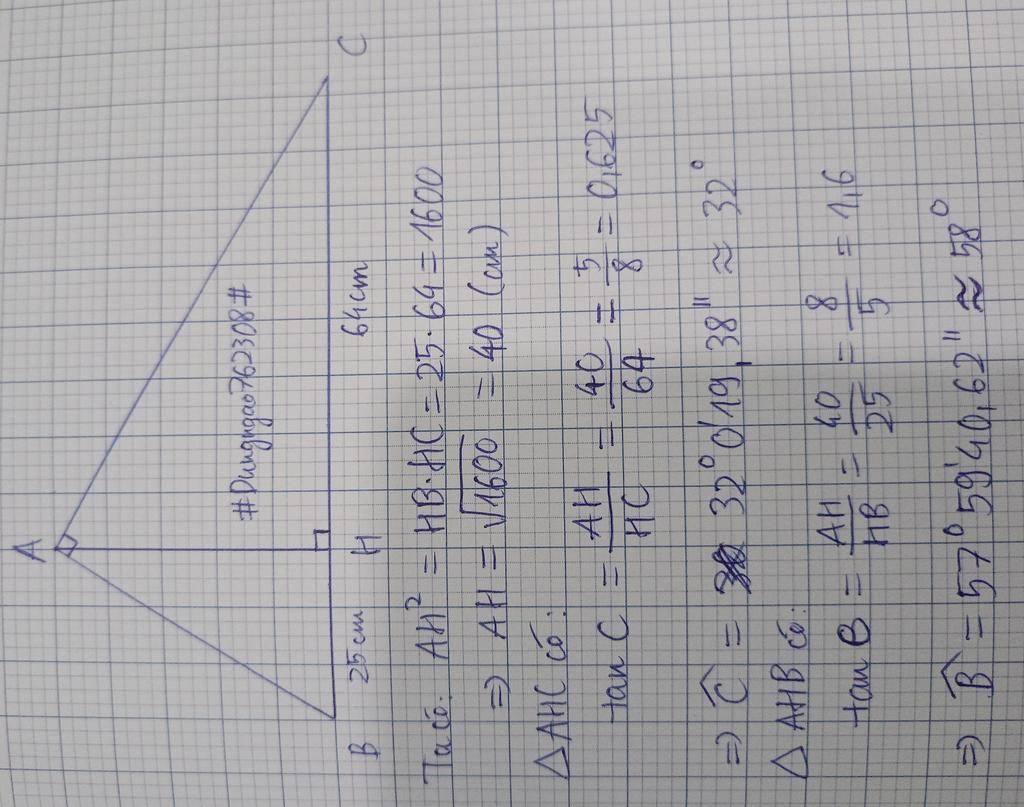 A
#Dungngao762308#
B 25cm H 64cm C
Ta có: AH² = HB·HC = 25·64 = 1600
=> AH = √1600 = 40 (cm)
△AHC có:
tan C = AH/HC = 40/64 = 5/8 = 0,625
=> Ĉ = 32°0'19,38" ≈ 32°
△AHB có:
tan B = AH/HB = 40/25 = 8/5 = 1,6
=> B̂ = 57°59'40,62" ≈ 58°